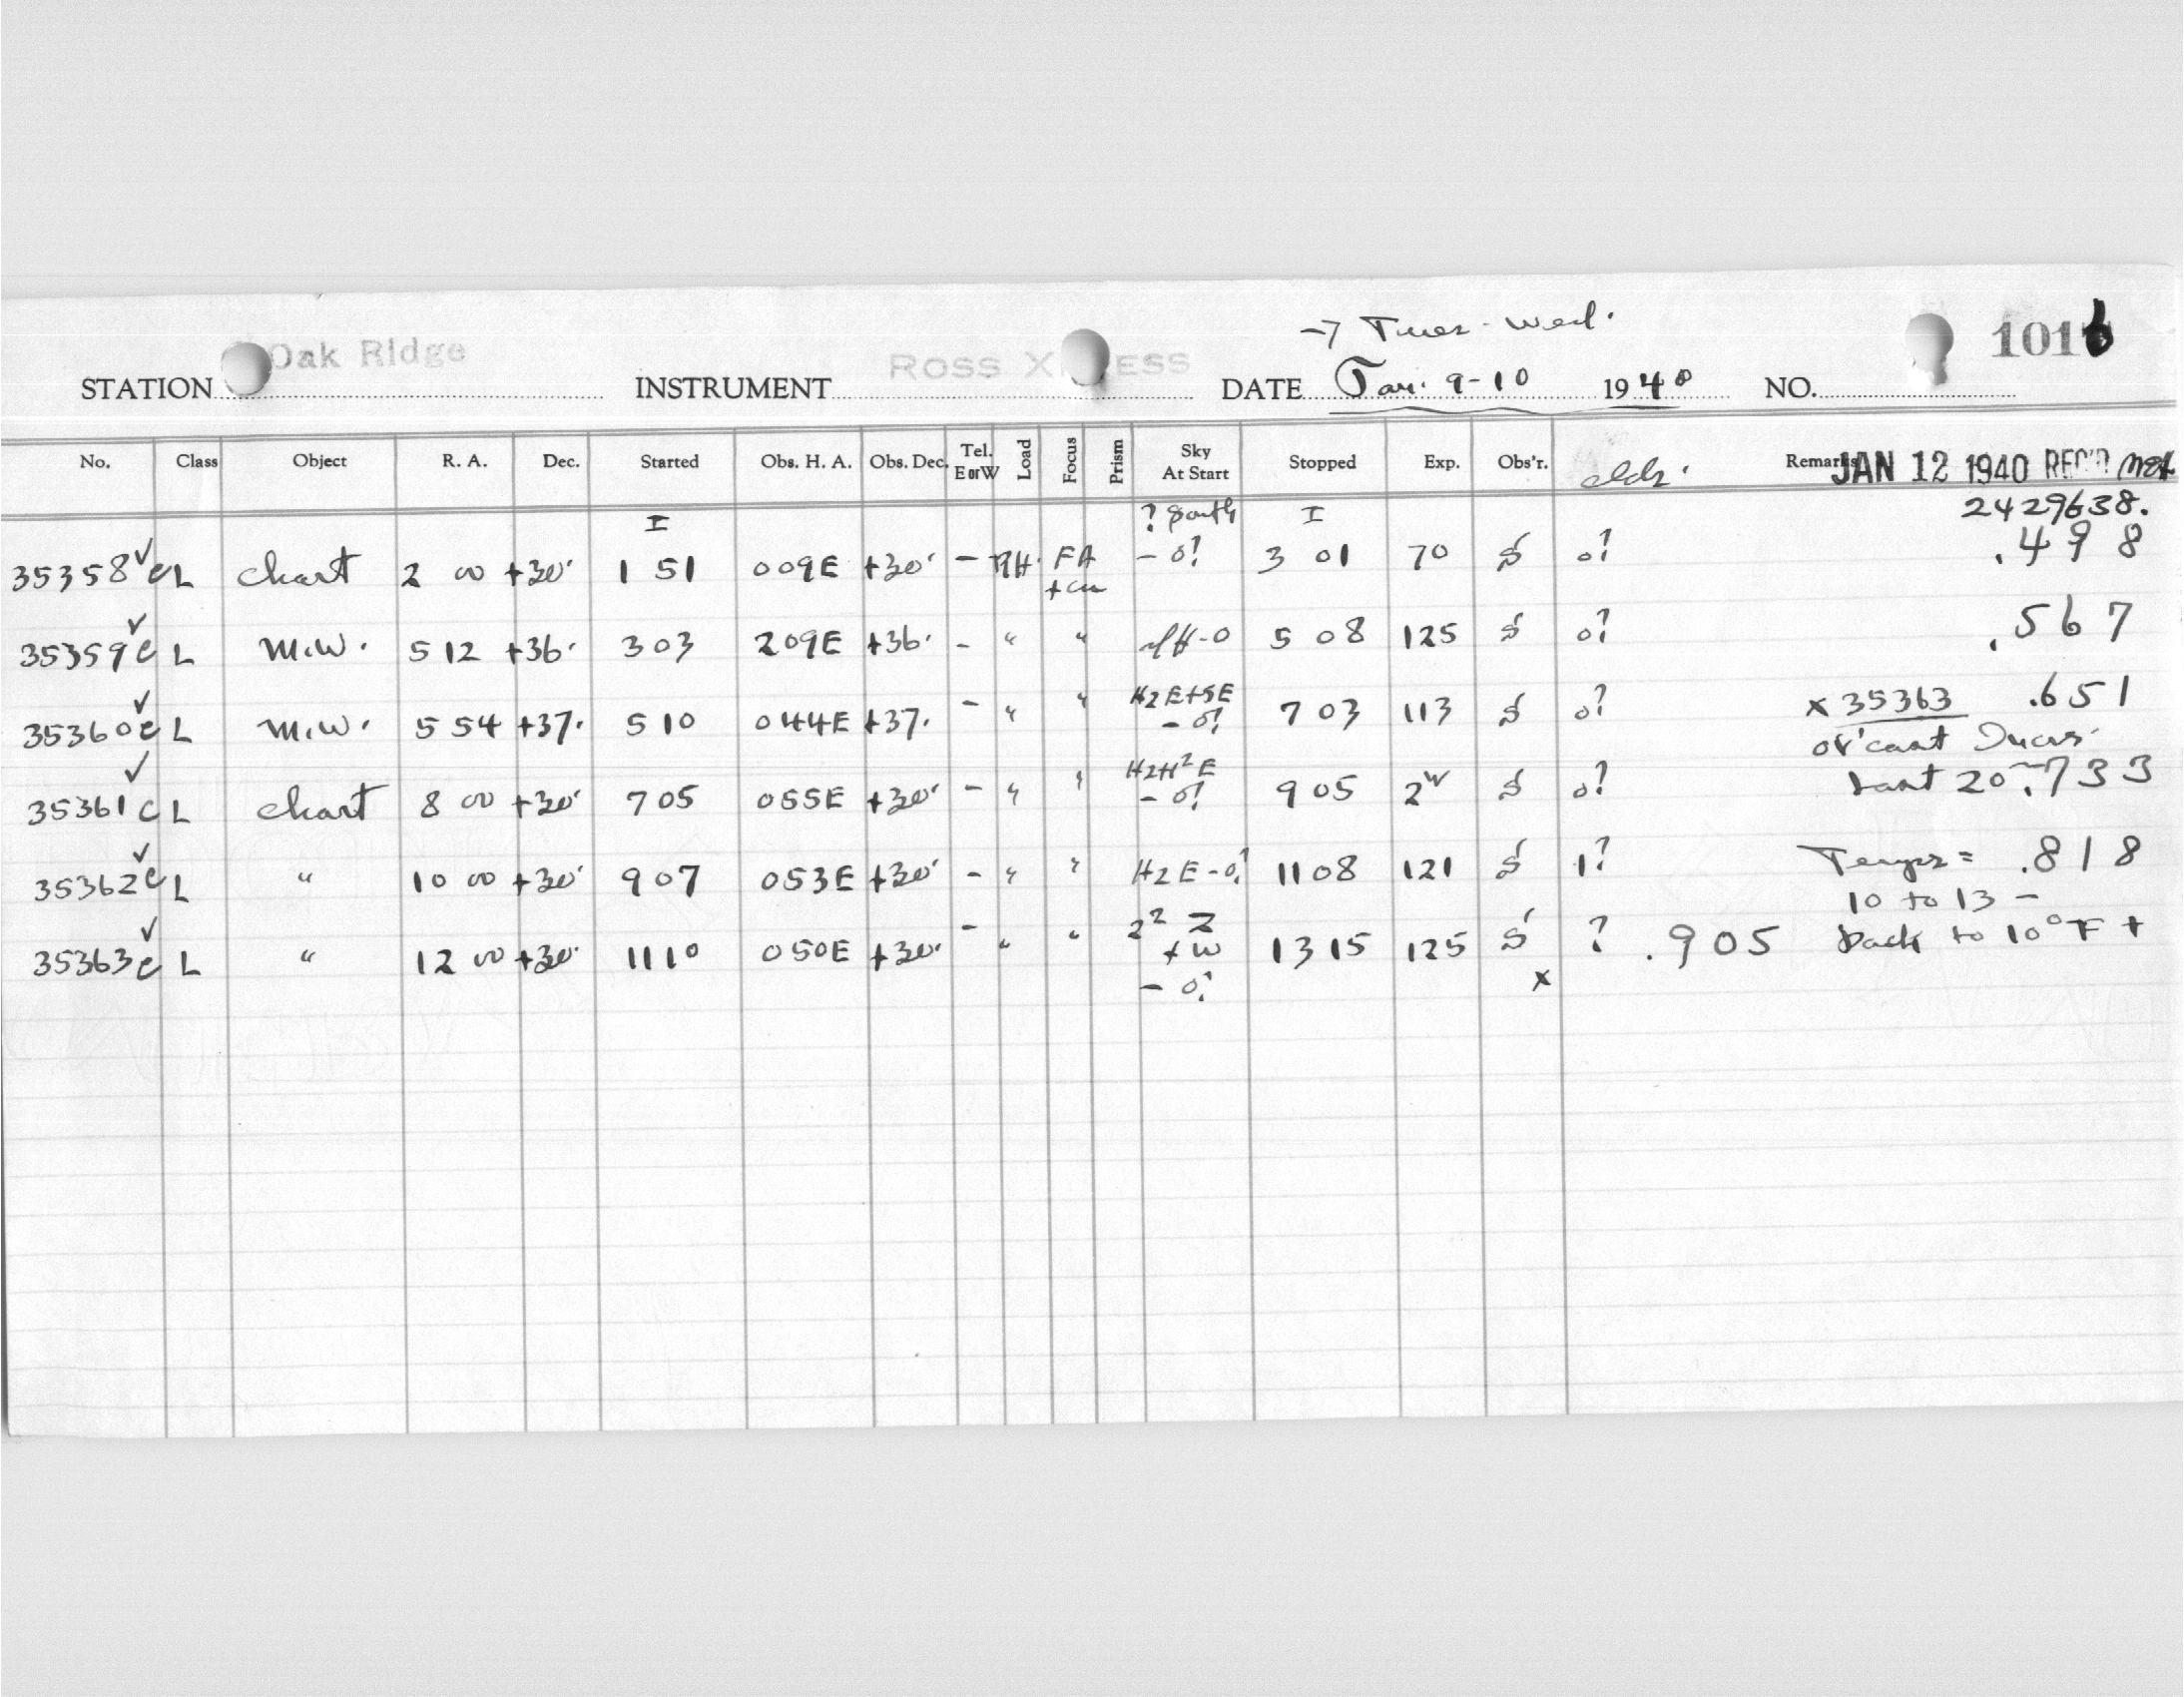 → Tues - Wed.
STATION Oak Ridge INSTRUMENT ROSS X ESS DATE Jan. 9-10 1940 NO. 1016
No. Class Object R. A. Dec. Started Obs. H. A. Obs. Dec. Tel. E or W Load Focus Prism Sky At Start Stopped Exp. Obs'r. Remarks JAN 12 1940 REC'D
I ? South I 2429638.
35358 ✓ C L Chart 2 00 +30° 1 51 009E +30° - FA - 0? 3 01 70 S 0? .498
35359 ✓ C L M.W. 5 12 +36° 3 03 209E +36° - " " - 0 5 08 125 S 0? .567
35360 ✓ C L M.W. 5 54 +37° 5 10 044E +37° - " " H2 E+SE - 0? 7 03 113 S 0? x 35363 .651
ov'cast
35361 ✓ C L Chart 8 00 +30° 7 05 055E +30° - " " H2H²E - 0? 9 05 2 S 0? last 20 .733
35362 ✓ C L " 10 00 +30° 9 07 053E +30° - " " H2 E - 0? 11 08 121 S 1? Temps = .818
10 to 13 -
35363 ✓ C L " 12 00 +30° 11 10 050E +30° - " " 2² Z + W - 0? 13 15 125 S x ? .905 back to 10°F +